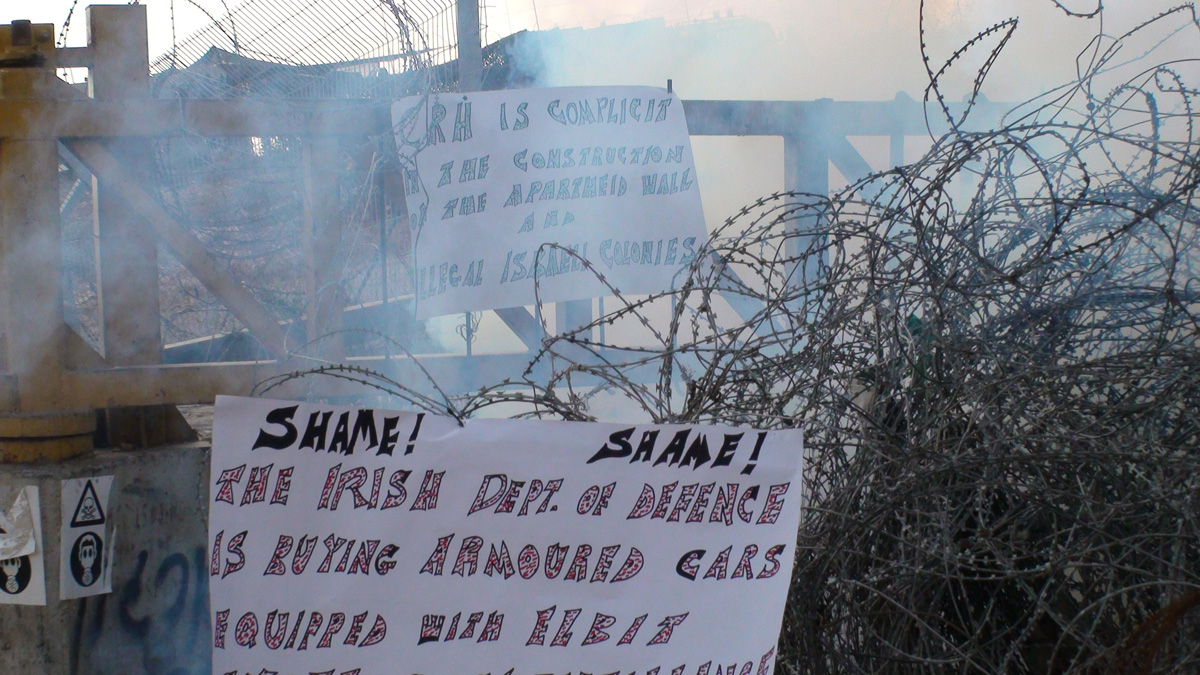 CRH IS COMPLICIT
IN THE CONSTRUCTION
OF THE APARTHEID WALL
AND
ILLEGAL ISRAELI COLONIES
SHAME! SHAME!
THE IRISH DEPT. OF DEFENCE
IS BUYING ARMOURED CARS
EQUIPPED WITH ELBIT